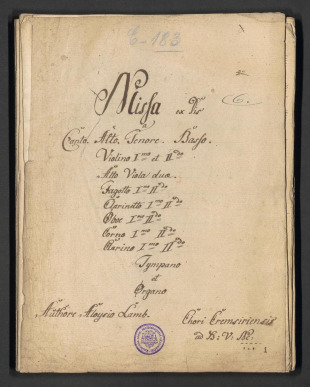 C-183
Missa ex Dis
C6.
a
Canto. Alto. Tenore. Basso.
Violino Imo et IIdo
Alto Viola dua.
Fagotto Imo IIdo
Clarinetto Imo IIdo
Oboe Imo IIdo
Corno Imo IIdo
Clarino Imo IIdo
Tympano
et
Organo
Authore Aloysio Lamb.
Chori Cremsiriensis
ad B: V: M:
1